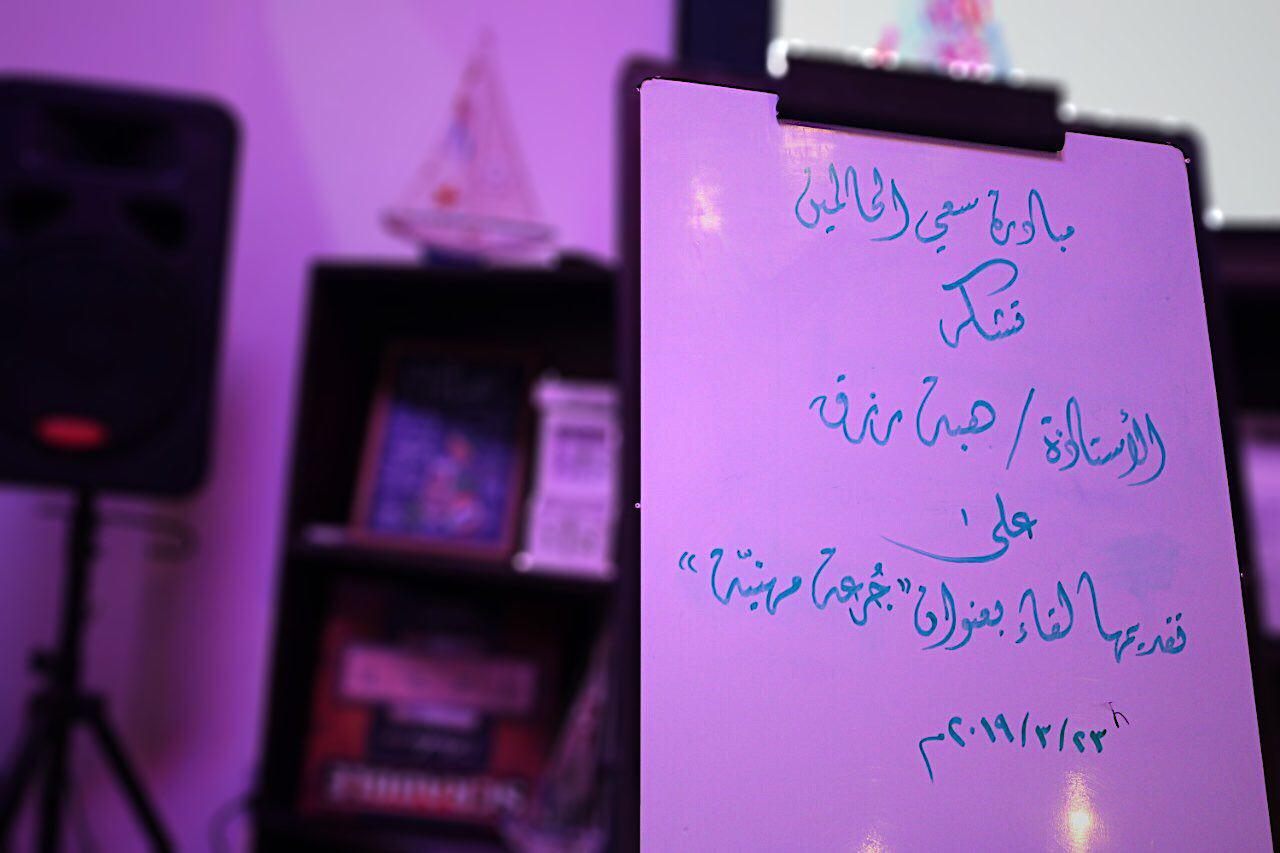 مبادرة سعي الحالمين
تشكر
الأستاذة / هبة رزق
على
تقديمها لقاء بعنوان "جُرعة مهنيّة"
٢٠١٩/٣/٢٣م
SCRABBLE